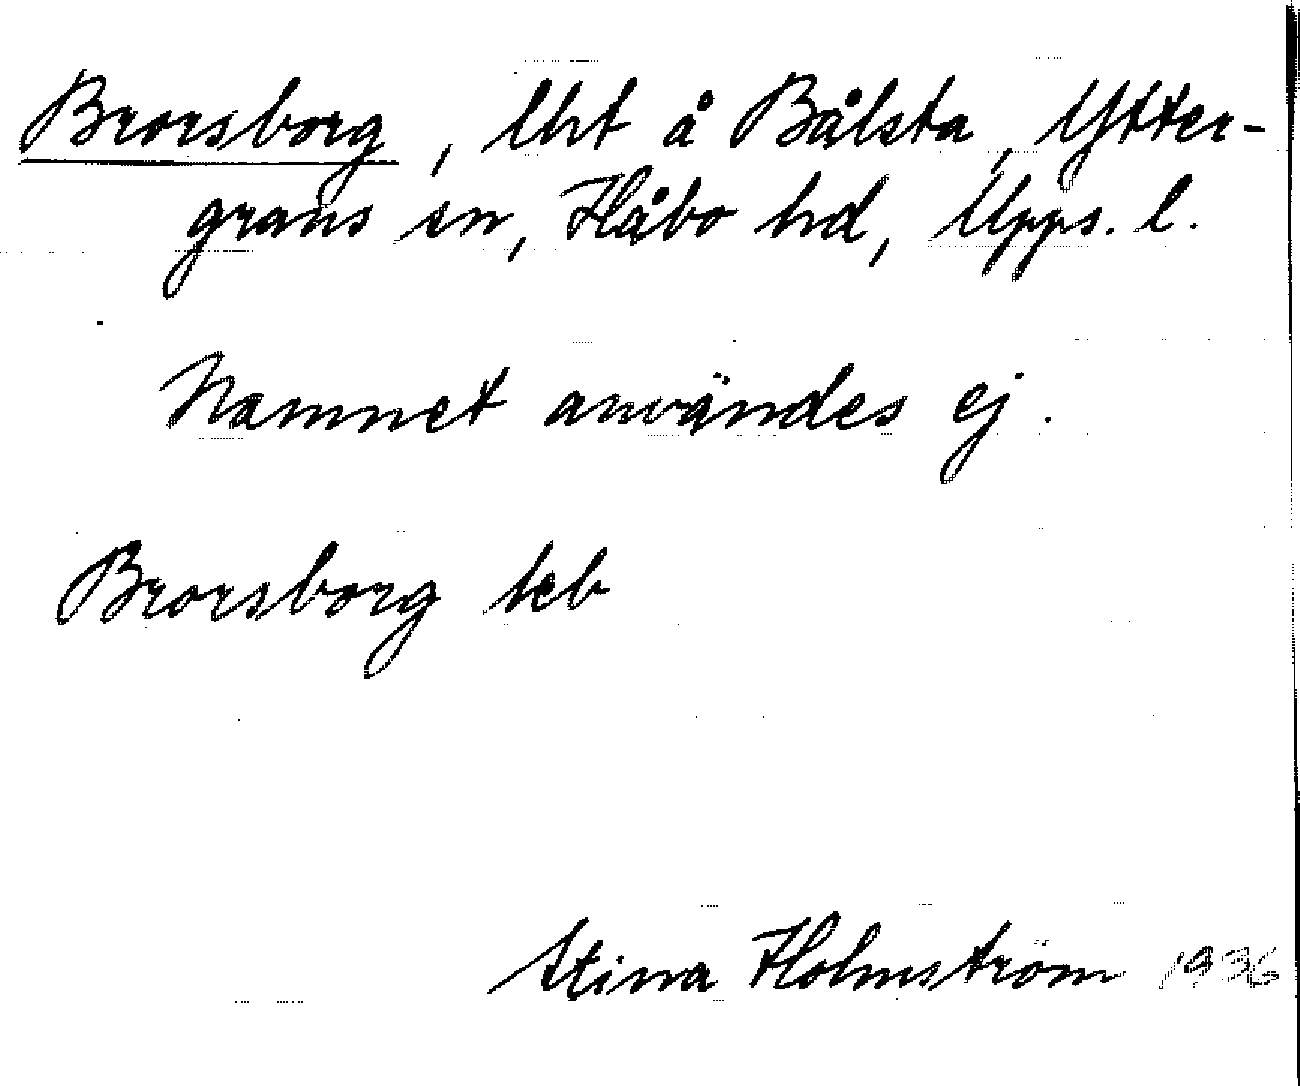 Brorsborg, lht å Bålsta, Ytter-
grans sn, Håbo hd, Upps. l.
Namnet användes ej.
Brorsborg jeb
Stina Holmström 1936